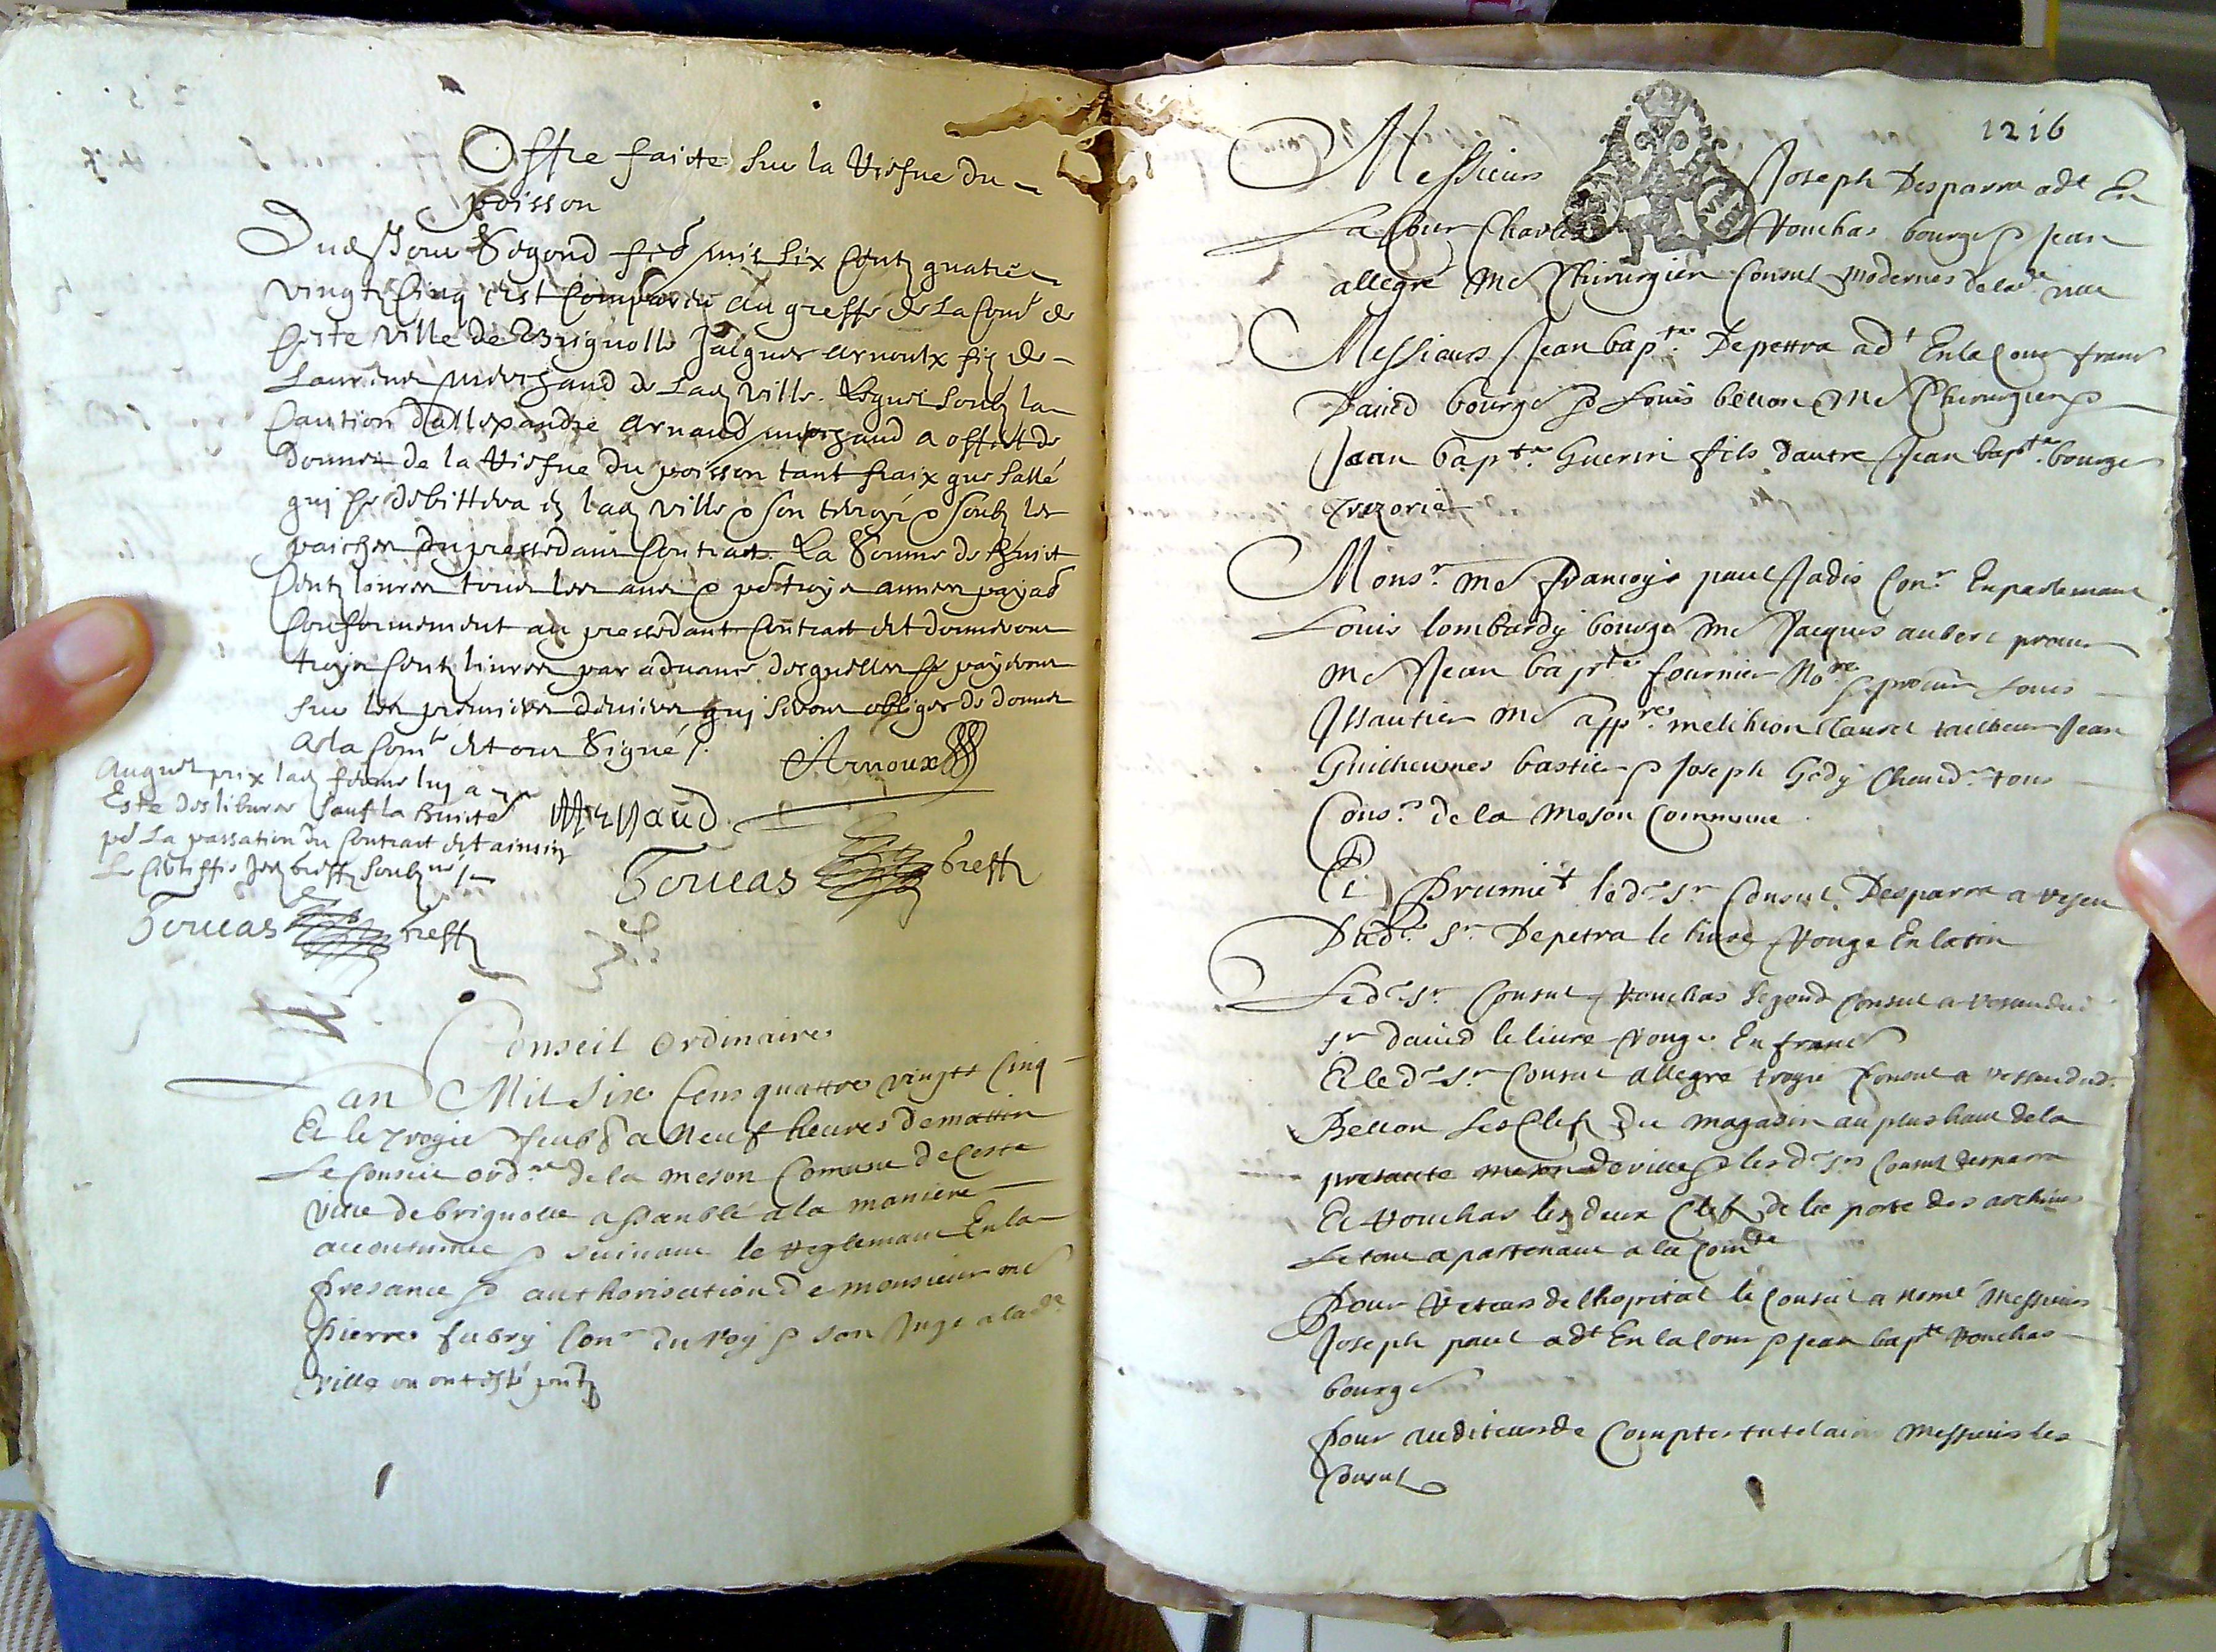 Offre faicte sur la Riefue du
poisson
Du dict Jour Segond feb mil six cents quatre
vingts Cinq est Comparu au greffe de La Comté de
ceste ville de Brignolle Jacques Arnoulx fiz de
Laurens marchand de Lad ville. Lequel soubz la
Caution d'allexandre Arnaud marchand a offert de
donner de la Riefue du poisson tant fraix que sallé
qui se debittera en lad ville & son terroir & soubz les
paches du pressedant Contract La Somme de huict
Cents livres tous les ans & pdt troys annees payab
Conformement au pressedant Contract et donneront
troys Cents livres par advance desquelles se payeront
sur les premiers deniers qui seront obliges de donner
a la Com.té et ont Signé /.
Arnoux
Auquel prix lad ferme luy a
Esté deslibvree sauf la huicte
pd La passation du Contract et ainsin
Le certiffie Je greff soubz.né /.
Arnaud
Toucas greff
Toucas greff
Conseil ordinaire
Lan Mil Six Cens quattre vingts Cinq
Et le troysie feub.r a Neuf heures de mattin
Le Conseil ord.re de la meson Comune de Ceste
ville de brignolle assamblé a la maniere
accoutumee & suivant le Reglemant En la
presance & authorisation de monsieur me
pierre fabry Con.r du Roy & son Juge a lad.
ville ou ont esté pnts
1216
Messieurs Joseph Desparra ad.t En
La Cour Charles Rouchas bourgs & Jean
allegre Me Chirurgien Consul modernes de lad. ville
Messieurs Jean bap.te Depetra ad.t En la Cour frans
David bourgs & Louis bellon Me Chirurgien &
Jean bap.te Guerin fils dautre Jean bap.te bourgs
Trezorier
Mons.r me francoys paul Jadis Con.r En parlemant
Louis lombardy bourgs me Jacques aubert procur
me Jean bap.te fournier No.re & procur Louis
Issautier me app.re melchion Clausel tailheur Jean
Guilheumes bastier & Joseph Gody Chaud.r tous
Cons.rs de la Meson Commune
Et Prumie.t led. s.r Consul Desparra a reseu
Dud. s.r Depetra le livre Rouge En latin
Led. s.r Consul Rouchas Segond Consul a reseu dud
s.r david le livre Rouge En frans
Et led. s.r Consul allegre troysie Consul a reseu dud.
Bellon Les Clefs du magasin au plus haut de la
presante meson de ville & lesd. s.rs Consul desparra
Et Rouchas les deux Clefs de la porte des archives
Le tout apartenant a la Com.te
pour Reteurs de lhopital le Conseil a nomé Messieurs
Joseph paul ad.t En la Cour & Jean bap.te Rouchas
bourgs
pour auditeurs de Comptes tutelaires Messieurs les
Consuls